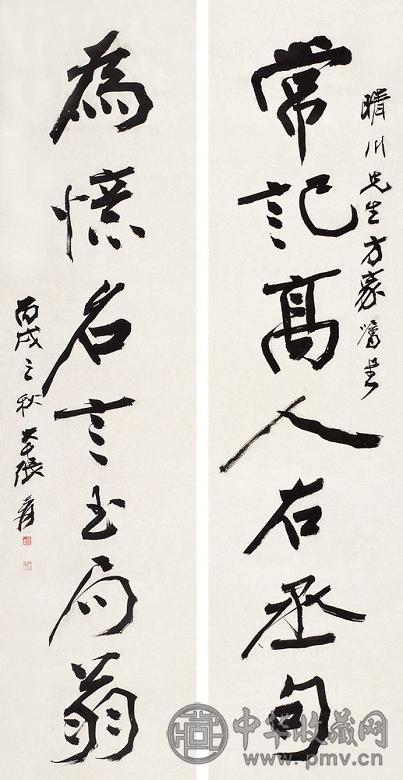 晴川先生方家
常記高人右丞句
為憶名言玉局翁
丙戌之秋大千張爰
中华收藏网
www.pmv.cn